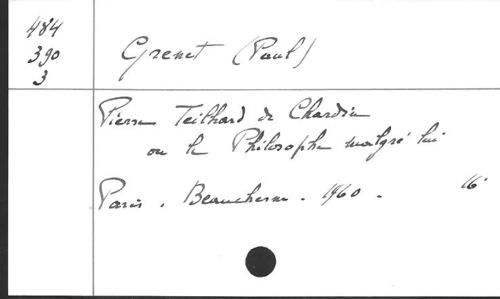 484
390
3
Grenet (Paul)
Pierre Teilhard de Chardin
ou le Philosophe malgré lui
Paris. Beauchesne. 1960. 16°